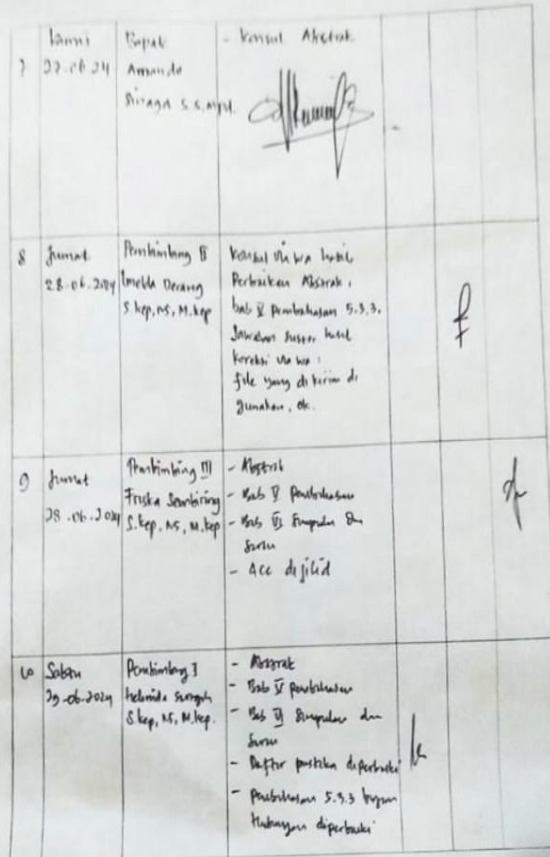 7
Kamis
27.06.24
Bapak
Amando
Sinaga S.S, M.Pd.
- Konsul Abstrak
8
Jumat
28.06.2024
Pembimbing II
Imelda Derang
S.kep, NS, M.kep
Konsul via wa hasil
Perbaikan Abstrak,
bab V pembahasan 5.3.3.
Jawaban suster hasil
koreksi via wa :
file yang di kirim di
gunakan, ok.
9
Jumat
28.06.2024
Pembimbing III
Friska Sembiring
S.kep, NS, M.kep
- Abstrak
- Bab V Pembahasan
- Bab VI Simpulan dan
Saran
- Acc dijilid
10
Sabtu
29-06-2024
Pembimbing I
S.kep, NS, M.kep.
- Abstrak
- Bab V pembahasan
- Bab VI Simpulan dan
Saran
- Daftar pustaka diperbaiki
- Pembahasan 5.3.3
diperbaiki